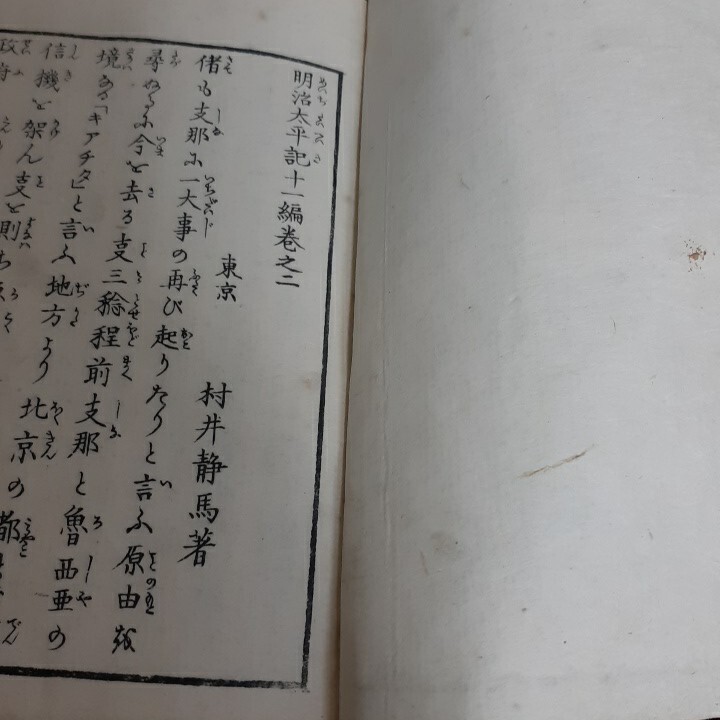 明治太平記十一編巻之二
東京　村井静馬著
偖も支那に一大事の再び起りたりと言ふ原由を
尋ぬるに今を去る支三稔程前支那と魯西亜の
境なる「キアチタ」と言ふ地方より北京の都
信機を架ん支を則ち
政府